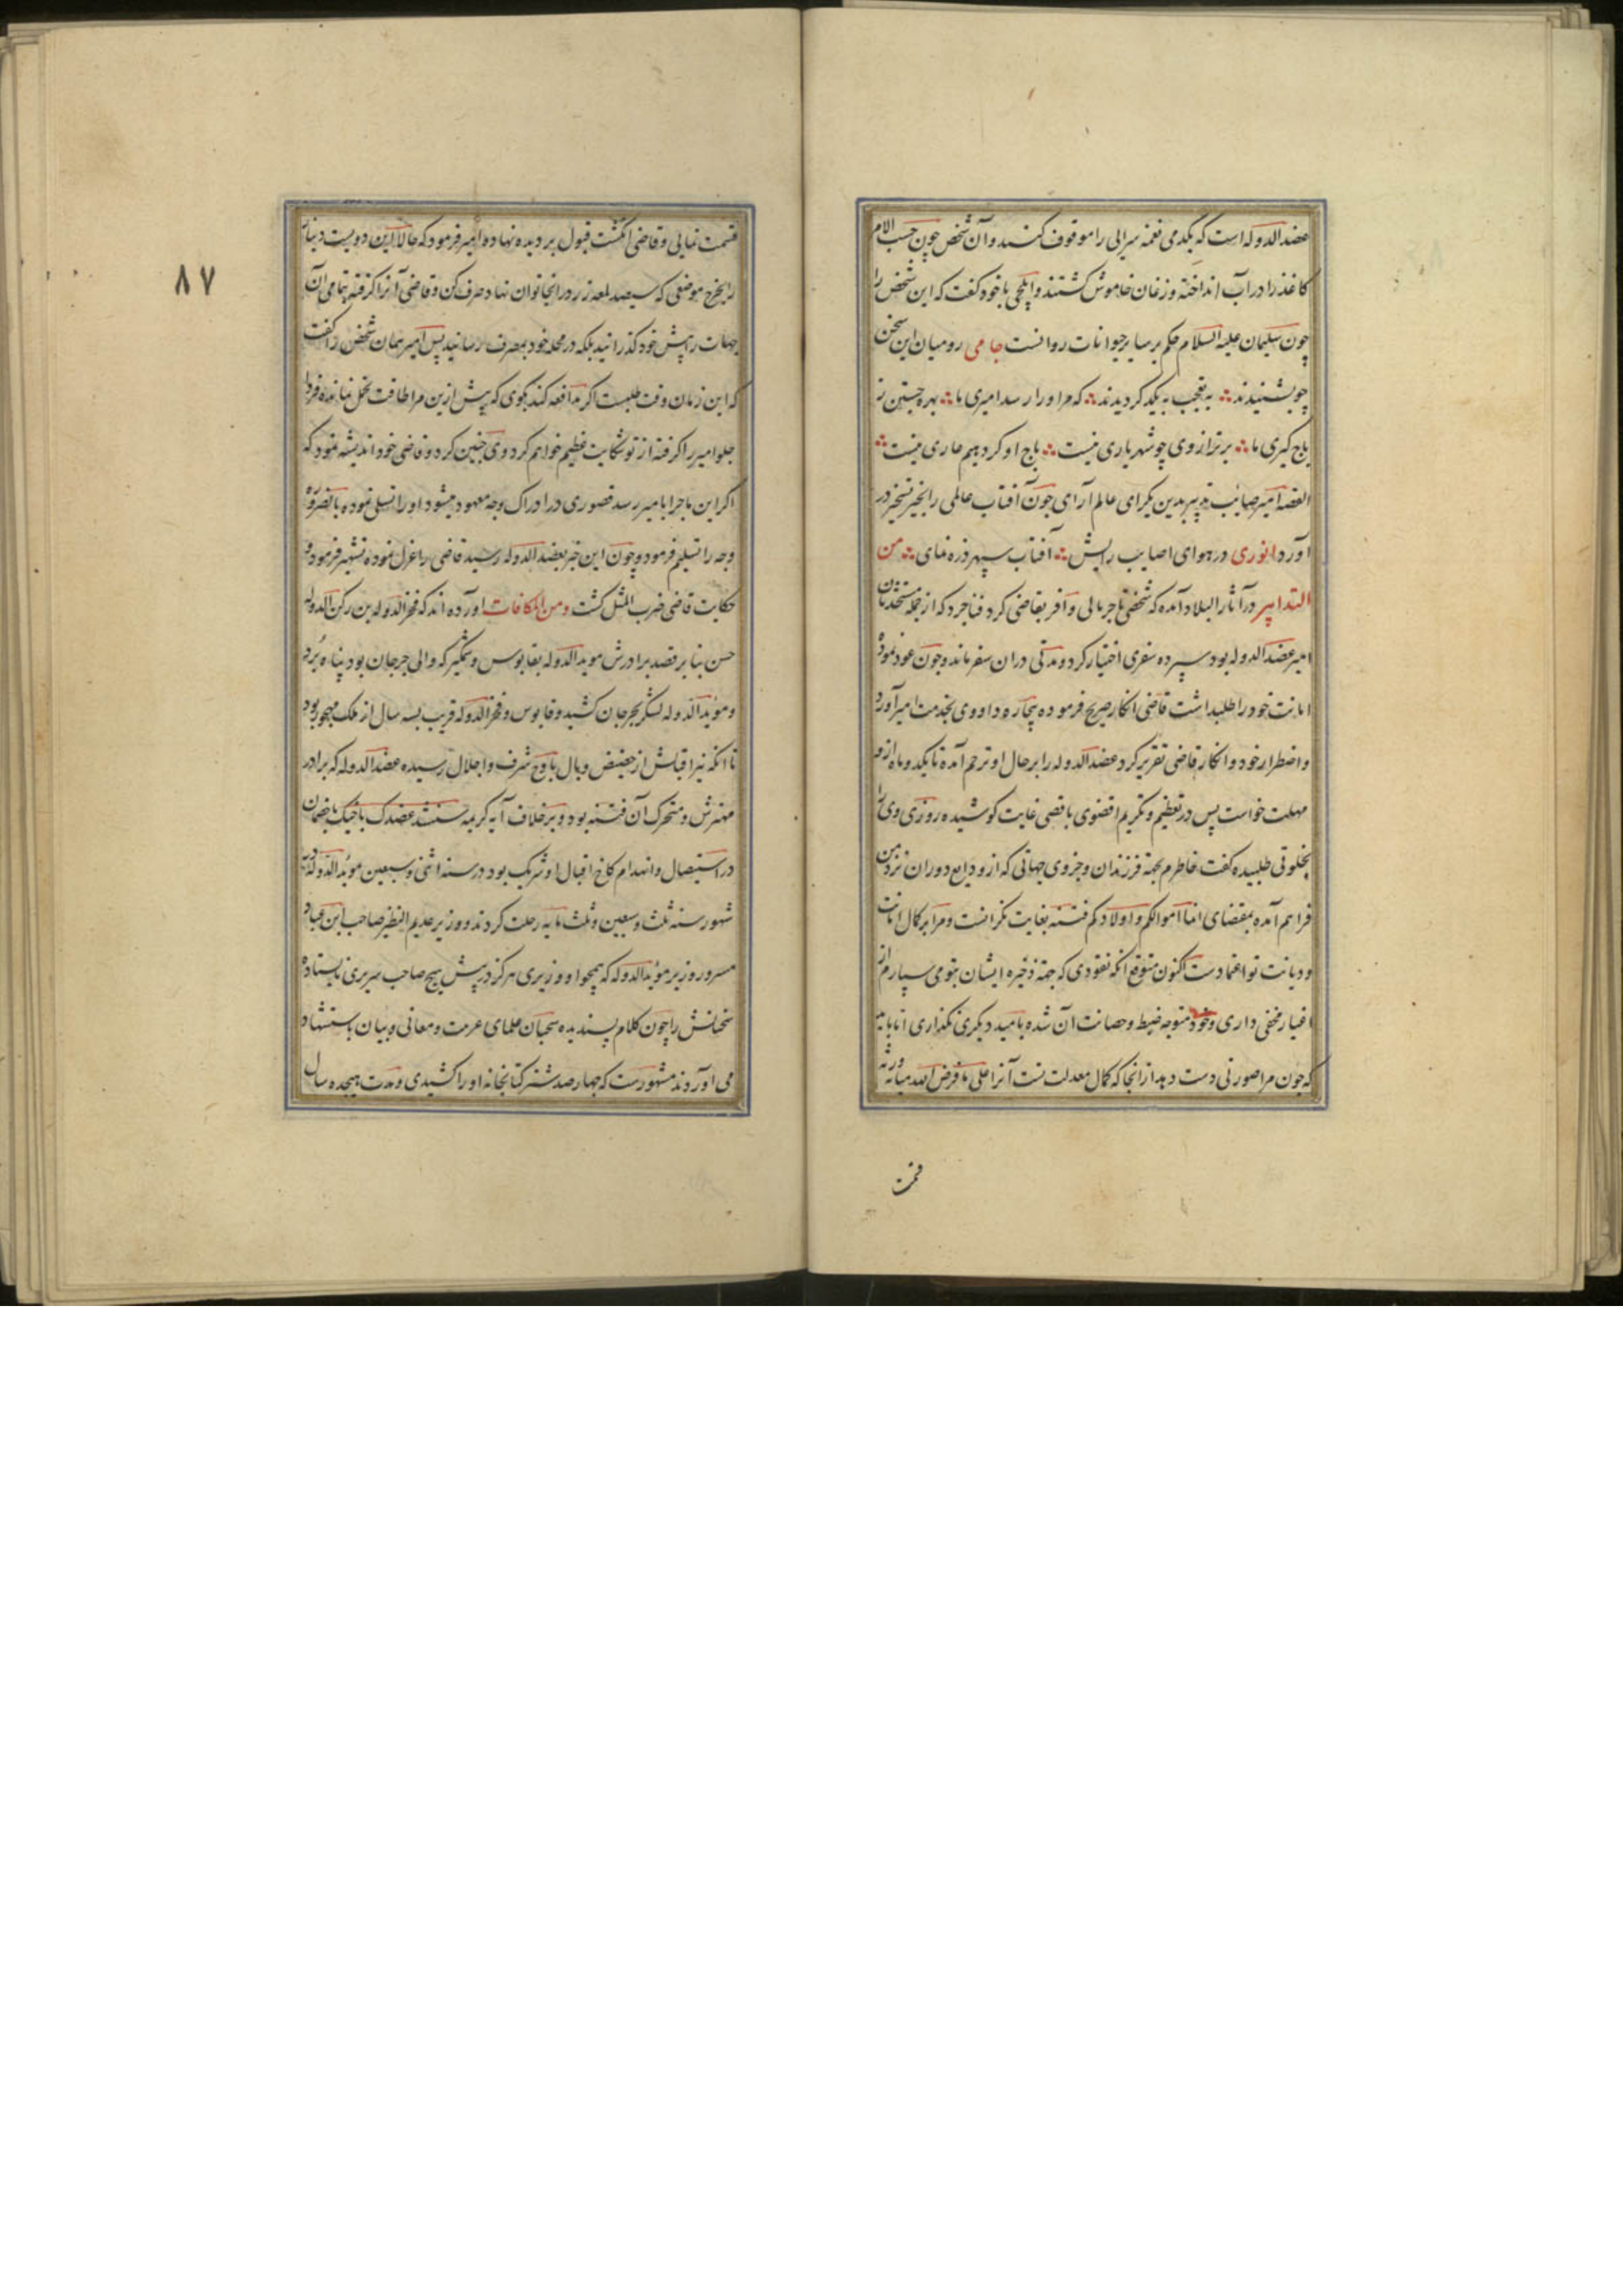 عضد الدوله است که یکدمی نغمه سرایی را موقوف کنند و آن شخص چون حسب الامر
کاغذ را در آب انداخته وزغان خاموش گشتند و ایلچی با خود گفت که این شخص را
چون سلیمان علیه السلام حکم بر سایر حیوانات روانست جامی رومیان این سخن
چو بشنیدند به تعجب به یکدگر دیدند که مر او را رسد امیری ما بهره جستن ز
باج گیری ما برتر از وی چو شهریاری نیست باج او گر دهیم عاری نیست
القصه امیر صائب تدبیر بدین یکرای عالم آرای چون آفتاب عالمی را بحیز تسخیر در
آورد انوری در هوای اصابب رایش آفتاب سپهر ذره نمای من
التدابیر در آثار البلاد آمده که شخصی تاجر مالی وافر بقاضی که از جمله مستخدمان
امیر عضد الدوله بود سپرده سفری اختیار کرد و مدتی در ان سفر مانده و چون عود نموده
امانت خود را طلبید اشت قاضی انکار صریح فرموده بیچاره داوری بخدمت امیر آورد
و اضطرار خود و انکار قاضی تقریر کرد عضد الدوله را بر حال او ترحم آمده تا یکدو ماه ازو
مهلت خواست پس در تعظیم و تکریم اقضوی باقصی غایت کوشیده روزی وی را
بخلوتی طلبیده گفت خاطرم بجهة فرزندان و جزوی جهاتی که از ودایع دوران نزد من
فراهم آمده بمقتضای انما اموالکم و اولادکم فتنه بغایت نگرانست و مرا بر کمال امانت
و دیانت تو اعتمادست اکنون متوقع انکه نقودی که جهة ذخیره ایشان بتو می سپارم از
اغیار مخفی داری و خود متوجه ضبط و حصانت آن شده بامید دیگری نگذاری
که چون مرا صورتی دست دهد از انجا که کمال معدلت تست آنرا علی ما فرض الله میانه ورثه
قسمت
۸۷
قسمت نمایی و قاضی انگشت قبول بر دیده نهاده امیر فرمود که حالا این دویست دینار
را بخرج موضعی که سیصد لعه زر در انجا توان نهاد صرف کن و قاضی آنرا گرفته تمامی آن
جهات را پیش خود گذرانید بلکه در محله خود بمصرف رسانید پس امیر بهمان شخص را گفت
که این زمان وقت طلبست اگر مدافعه کند بگوی که پیش ازین مرا طاقت تحمل نمانده فردا
جلو امیر را گرفته از تو شکایت عظیم خواهم کرد وی چنین کرد و قاضی خود اندیشه نمود که
اگر این ماجرا بامیر رسد قصوری در ادراک وجه معهود میشود او را تسلی نموده بالضروره
وجه را تسلیم فرمود و چون این خبر بعضد الدوله رسید قاضی را عزل نموده تشهیر فرمود و
حکایت قاضی ضرب المثل گشت ومن المکافات آورده اند که فخر الدوله بن رکن الدوله
حسن بنا بر قصد برادرش موید الدوله بقابوس وشمگیر که والی جرجان بود پناه برد
و موید الدوله لشکر بجرجان کشید و قابوس و فخر الدوله قریب بسه سال از ملک مهجور بود
تا انکه نیر اقبالش از حضیض وبال باوج شرف و اجلال رسیده عضد الدوله که برادر
مهترش و متحرک آن فتنه بود و بر خلاف آیه کریمه سنشد عضدک باخیک
در استیصال و انهدام کاخ اقبال او شریک بود در سنه اثنی و سبعین موید الدوله در
شهور سنه ثلث و سبعین و ثلث مایه رحلت کردند و وزیر عدیم النظیر صاحب ابن عباد
مسرور وزیر موید الدوله که همچو او وزیری هرگز در پیش هیچ صاحب سریری نایستاده
سخنانش را چون کلام پسندیده سحبان علمای عربیت و معانی و بیان باستشهاد
می آوردند مشهورست که چهار صد شتر کتابخانه او را کشیدی و مدت هیجده سال